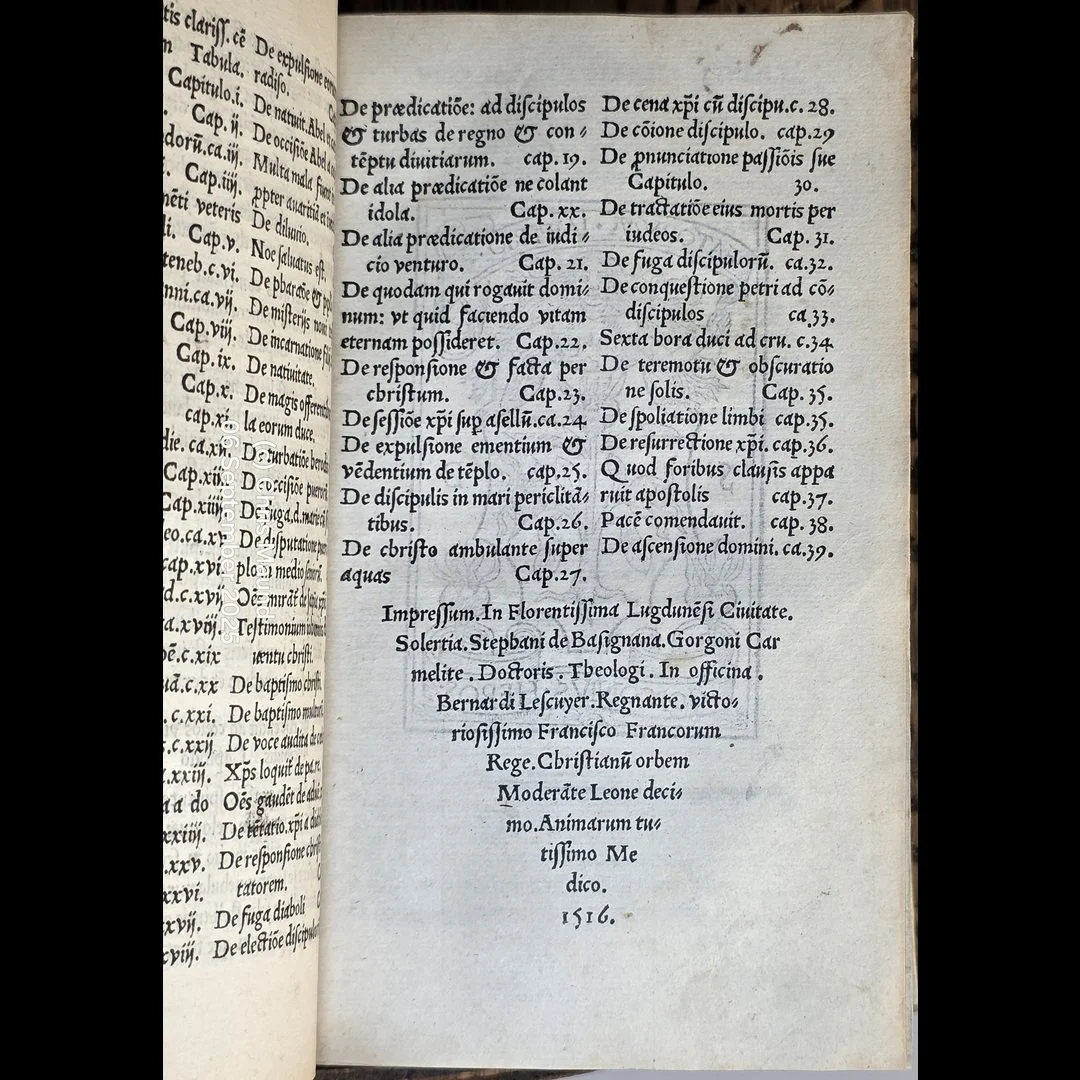 tis clariss. cē
Tabula.
Capitulo.i.
Cap. ij.
dorū.ca.iij.
Cap.iiij.
mēti veteris
li. Cap.v.
teneb.c.vi.
nni.ca.vij.
Cap.viij.
Cap.ix.
Cap.x.
cap.xi.
die. ca.xij.
Cap.xiij.
Cap.xiiij.
eo.ca.xv
cap.xvi.
d.c.xvij
a.xviij.
c.xix
c.xx
.c.xxi.
s.c.xxij
.xxiij.
a do
xxiiij.
.xxv.
xxvi.
xxvij.
xviij.
De expulsione eorum
radiso.
De natiuit. Abel et
De occisiōe Abel a
Multa mala fiunt
ꝓpter auaritiā et
De diluuio.
Noe saluatus est.
De pharaōe & 
De misterijs noui
De incarnatione filij
De natiuitate.
De magis offerentibus
la eorum duce.
De turbatiōe herodis
De occisiōe puerorū
De fuga.d.marie cū
De disputatione pueri
plo in medio senorū.
Oēs mirāt de sapia xp̄i.
Testimonium iohannis
uentu christi.
De baptismo christi.
De baptismo
De voce audita de ce
Xp̄s loquit de pa.re.
Oēs gaudēt de
De tētatio.xp̄i a
De responsione christi
tatorem.
De fuga diaboli
De electiōe discipulorū
De prædicatiōe: ad discipulos
& turbas de regno & con-
tēptu diuitiarum. cap.19.
De alia prædicatiōe ne colant
idola. Cap.xx.
De alia prædicatione de iudi-
cio venturo. Cap. 21.
De quodam qui rogauit domi-
num: vt quid faciendo vitam
eternam possideret. Cap.22.
De responsione & facta per
christum. Cap.23.
De sessiōe xp̄i sup asellū.ca.24
De expulsione ementium &
vēdentium de tēplo. cap.25.
De discipulis in mari periclitā-
tibus. Cap.26.
De christo ambulante super
aquas Cap.27.
De cena xp̄i cū discipu.c. 28.
De cōione discipulo. cap.29
De ꝓnunciatione passiōis sue
Capitulo. 30.
De tractatiōe eius mortis per
iudeos. Cap. 31.
De fuga discipulorū. ca.32.
De conquestione petri ad cō-
discipulos ca.33.
Sexta hora duci ad cru. c.34
De teremotu & obscuratio
ne solis. Cap. 35.
De spoliatione limbi cap.35.
De resurrectione xp̄i. cap.36.
Quod foribus clausis appa
ruit apostolis cap.37.
Pacē comendauit. cap. 38.
De ascensione domini. ca.39.
Impressum.In Florentissima Lugdunēsi Ciuitate.
Solertia.Stephani de Basignana.Gorgoni Car
melite.Doctoris.Theologi.In officina.
Bernardi Lescuyer.Regnante.victo-
riosissimo Francisco Francorum
Rege.Christianū orbem
Moderāte Leone deci-
mo.Animarum tu-
tissimo Me
dico.
1516.
06 September 2025